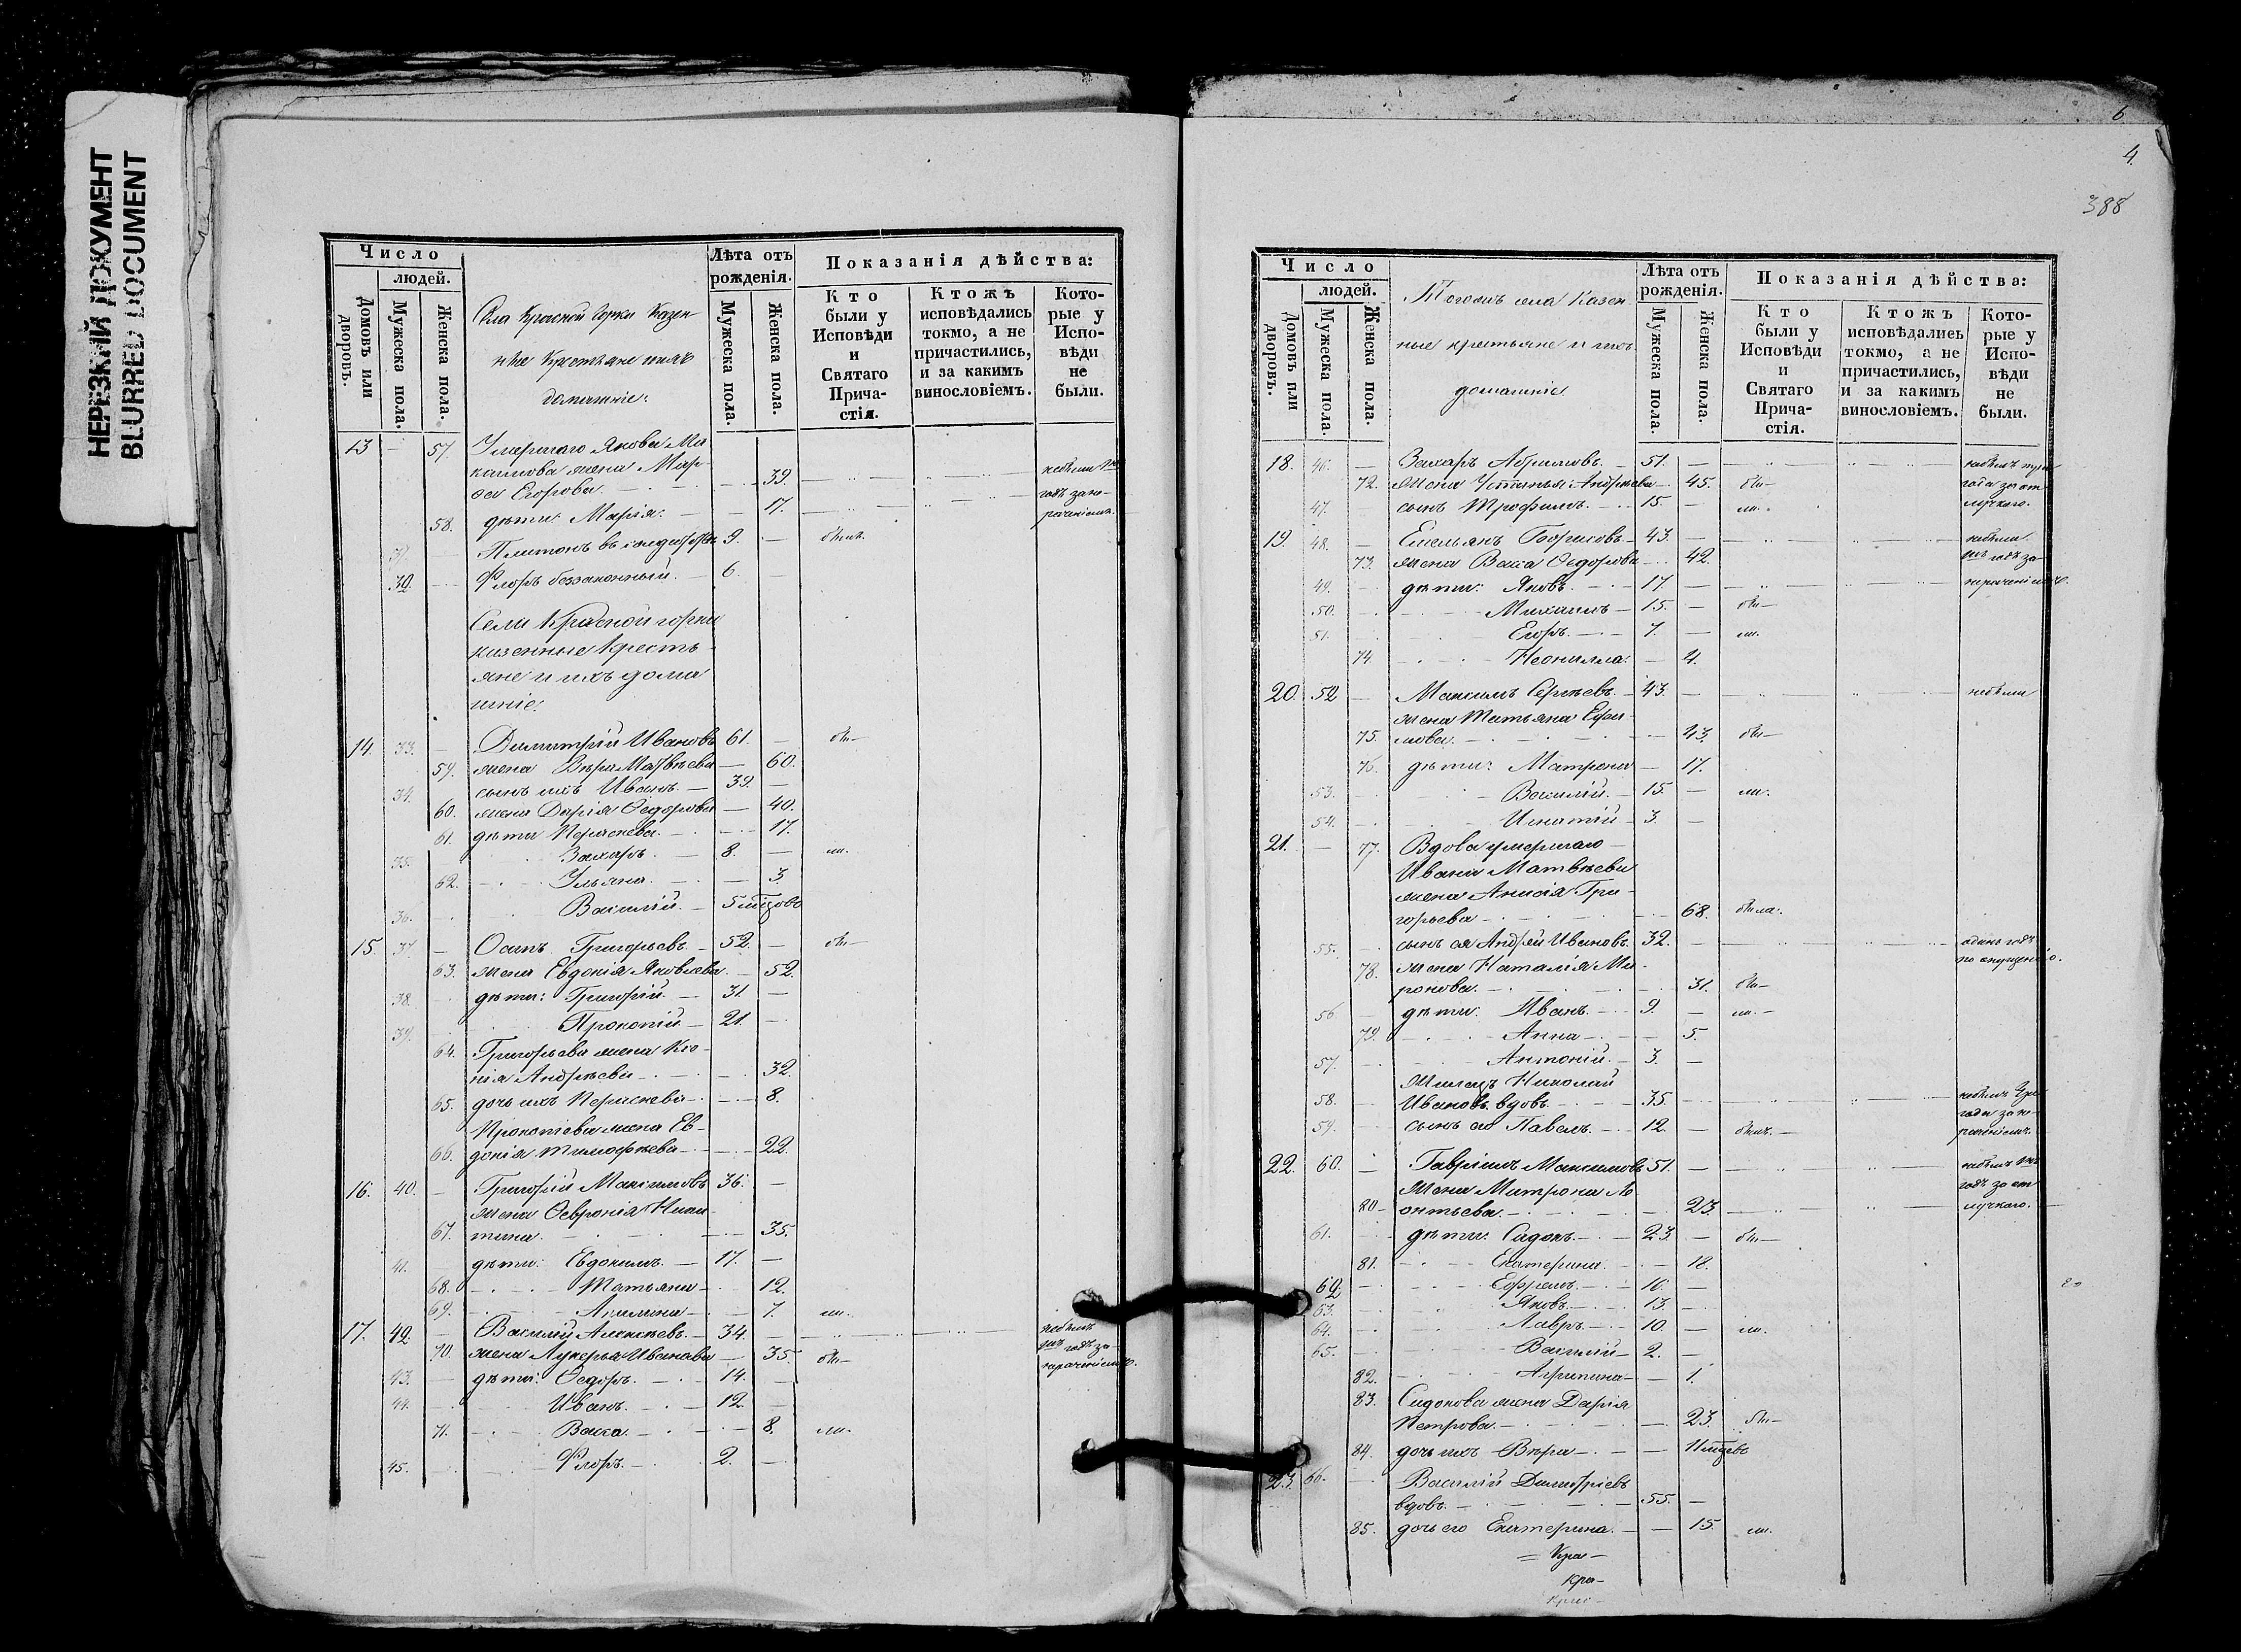 НЕРЕЗКИЙ ДОКУМЕНТ
BLURRED DOCUMENT
Число
людей.
Домовъ или дворовъ.
Мужеска пола.
Женска пола.
Села Красной Горки Казен-
ные Крестьяне и ихъ
домашніе:
Лѣта отъ рожденія.
Мужеска пола.
Женска пола.
Показанія дѣйства:
Кто были у Исповѣди и Святаго Причастія.
Ктожъ исповѣдались токмо, а не причастились, и за какимъ винословіемъ.
Которые у Исповѣди не были.
13 — 57. Умершаго Якова Ми-
хаилова жена Мар-
ѳа Егорова — 39.
58. дѣти: Марія — 17.
9. — былъ
39. Флоръ беззаконный. — 6. —
Села Красной горки
казенные Кресть-
яне и ихъ дома
шніе:
14. 33. — Димитрій Ивановъ 61. — бы—
59. жена Вѣра Матвѣева — 60.
34. сынъ ихъ Иванъ — 39. —
60. жена Дарія Ѳедорова — 40.
61. дѣти Параскева — 17.
35. Захаръ — 8. — ли.
62. Ульяна — 3.
36. Василій — 5 мцово
15. 37. — Осипъ Григорьевъ — 52. — бы—
63. жена Евдокія Яковлева — 52.
38. дѣти: Григорій — 31. —
39. Прокопій — 21. —
64. Григорьева жена Ксе-
нія Андрѣева — 32.
65. дочь ихъ Параскева — 8.
Прокопіева жена Ев-
66. докія Тимофѣева — 22.
16. 40. — Григорій Максимовъ 36. —
жена Ѳевронія Ники-
67. тина — 35.
41. дѣти: Евдокимъ — 17. —
68. Татьяна — 12.
69. Акилина — 7. ли.
17. 42. — Василій Алексѣевъ — 34. —
70. жена Лукерья Иванова — 35. бы—
43. — дѣти: Ѳедоръ — 14. —
44. Иванъ — 12. —
71. Васса — 8. ли.
45. Флоръ — 2. —
6
4.
388
Число
людей.
Домовъ или дворовъ.
Мужеска пола.
Женска пола.
Тогожъ села Казен-
ные крестьяне и ихъ
домашніе
Лѣта отъ рожденія.
Мужеска пола.
Женска пола.
Показанія дѣйства:
Кто были у Исповѣди и Святаго Причастія.
Ктожъ исповѣдались токмо, а не причастились, и за какимъ винословіемъ.
Которые у Исповѣди не были.
18. 46. — Захаръ Абрамовъ — 51. —
72. жена Устинья Андрѣева — 45. бы—
47. сынъ Трофимъ — 15. — ли.
19. 48. — Емельянъ Борисовъ — 43. — небыли
73. жена Васса Ѳедорова — 42.
49. дѣти: Яковъ — 17. —
50. Михаилъ — 15. — бы—
51. Егоръ — 7. — ли.
74. Неонилла — 4.
20. 52 — Максимъ Сергѣевъ — 43. — небыли
жена Татьяна Ефи-
75. мова — 43. бы—
76. дѣти: Матрона — 17.
53. Василій — 15. — ли.
54. Игнатій — 3. —
21. — 77. Вдова умершаго
Ивана Матвѣева
жена Анисія Гри-
горьева — 68. была.
55. сынъ ея Андрей Ивановъ 32. — одинъ годъ
по опущенію.
78. жена Наталія Ми-
ронова — 31. бы—
56 — дѣти: Иванъ — 9. — ли. —
79. Анна — 5.
57. Антоній — 3. —
Николай
58. Ивановъ вдовъ — 35. —
59. сынъ его Павелъ — 12. — былъ. —
22. 60. — Гавріилъ Максимовъ 51. —
жена Матрона Ле-
80 — онтьева — 23.
61. дѣти: Сидоръ — 23. — бы—
81. Екатерина — 18.
62. Ефремъ — 16. —
63. Яковъ — 13. —
64. Лавръ — 10. — ли.
65. Василій — 2. —
82. Агрипина — 1.
83. Сидорова жена Дарія
Петрова — 23. бы—
84. дочь ихъ Вѣра —
23. 66. Василій Димитріевъ
вдовъ — 55. —
85. дочь его Екатерина — 15. ли.
= Кра—
Кра—